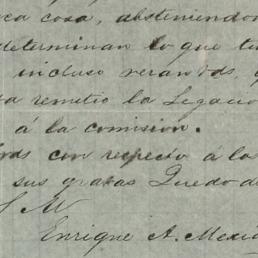 cosa, absteniendo
determinan lo que
incluso verán Vds,
remitio la Legacio
á la comisión.
con respecto á los
sus gratas Quedo de
S M
Enrique A. Mexia